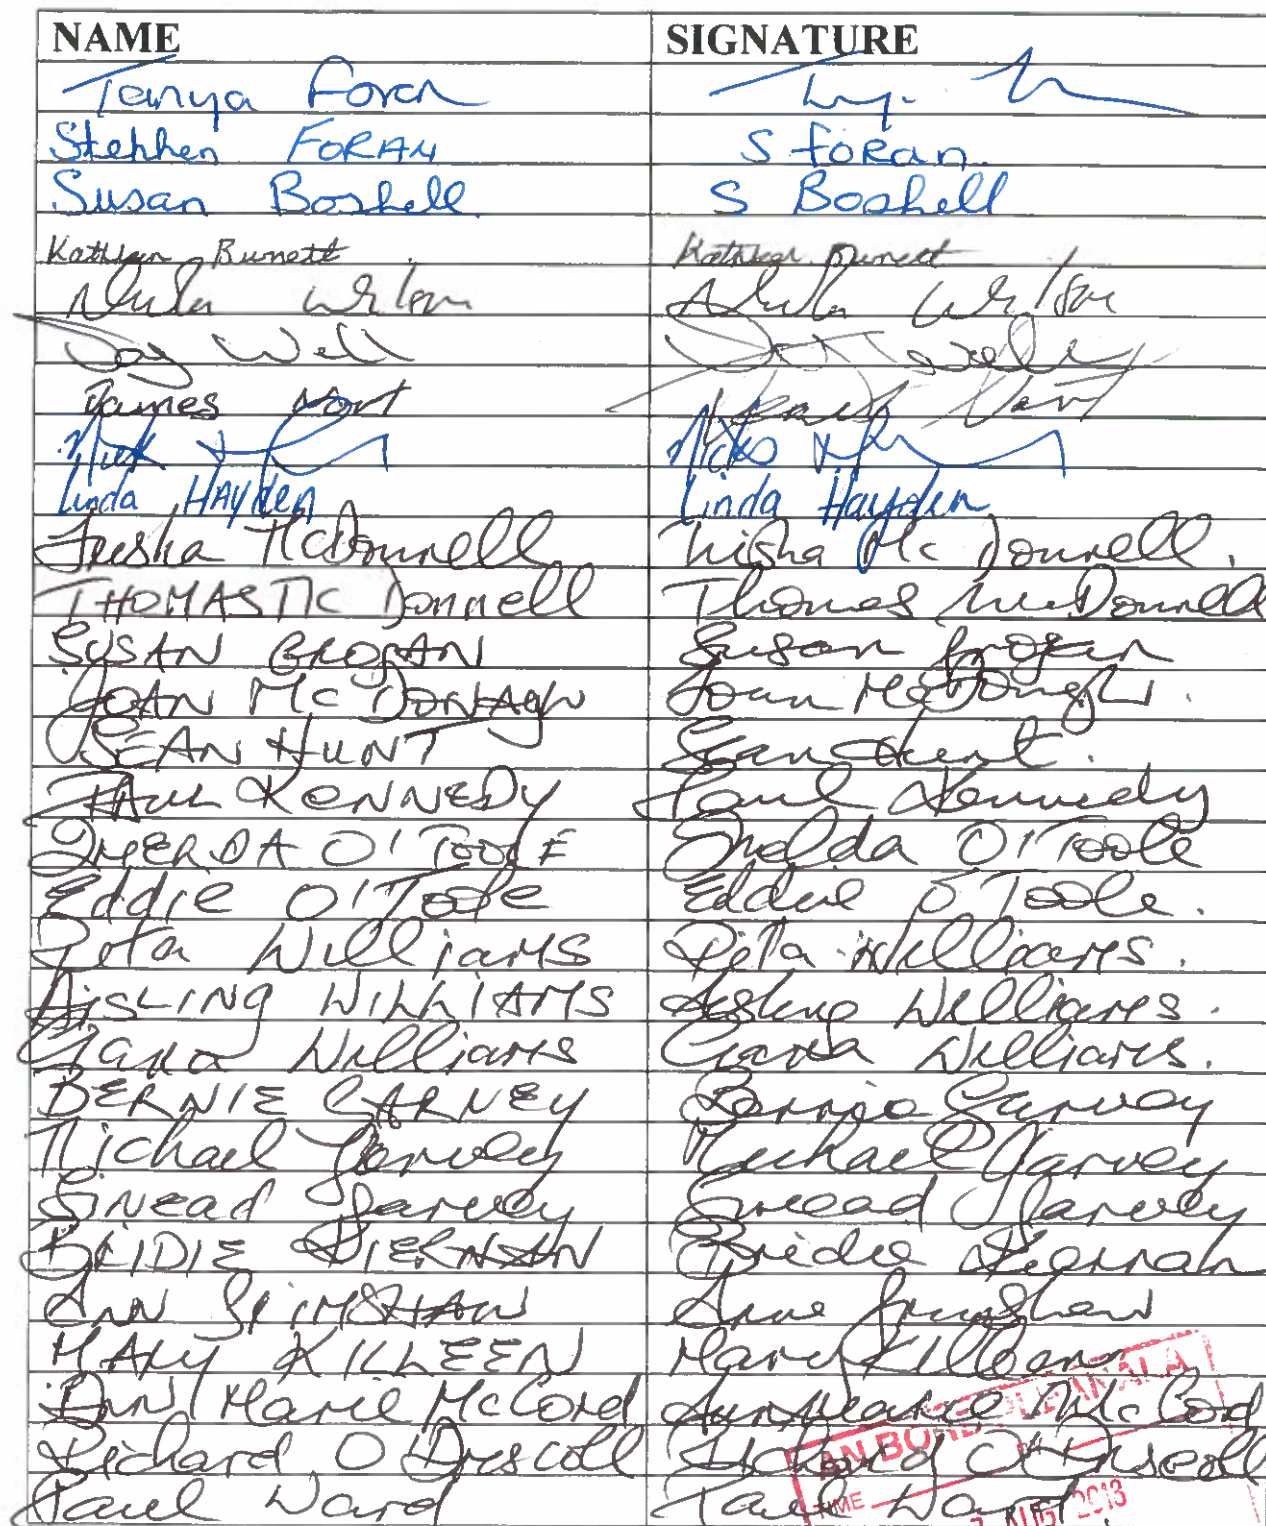 NAME SIGNATURE
Tanya Foran
Stephen FORAN S Foran.
Susan Boshell. S Boshell
Kathleen Burnett Kathleen Burnett
Wilson Wilson
Joy Well
James Hart James Hart
Nick Nick
Linda HAYDEN Linda Hayden
Trisha McDonnell Trisha Mc Donnell.
THOMAS Mc Donnell Thomas McDonnell
SUSAN BROGAN Susan Brogan
JOAN Mc DONAGH Joan McDonagh.
SEAN HUNT Sean Hunt.
PAUL KENNEDY Paul Kennedy
IMELDA O'TOOLE Imelda O'Toole
Eddie O'Toole Eddie O'Toole.
Rita Williams Rita Williams.
AISLING WILLIAMS Aisling Williams.
Ciara Williams Ciara Williams.
BERNIE GARVEY Bernie Garvey
Michael Garvey Michael Garvey
Sinead Garvey Sinead Garvey
BRIDIE KIERNAN Bridie Kiernan
ANN GRIMSHAW Anne Grimshaw
MARY KILLEEN Mary Killeen
ANN Marie McCord Ann Marie McCord
Richard O Driscoll Richard O'Driscoll
Paul Ward Paul Ward
AN BORD PLEANALA
TIME
AUG 2013